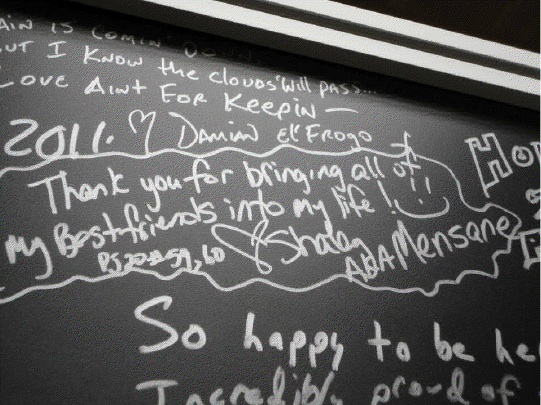 AIN IS COMIN' DOWN
BUT I KNOW the clouds will pass...
LOVE AINT FOR KEEPIN —
2011. ♡ DAMIAN El' FROGO
Thank you for bringing all of
my Best friends into my life!
AKA Mensane
So happy to be he
Incredibly proud of